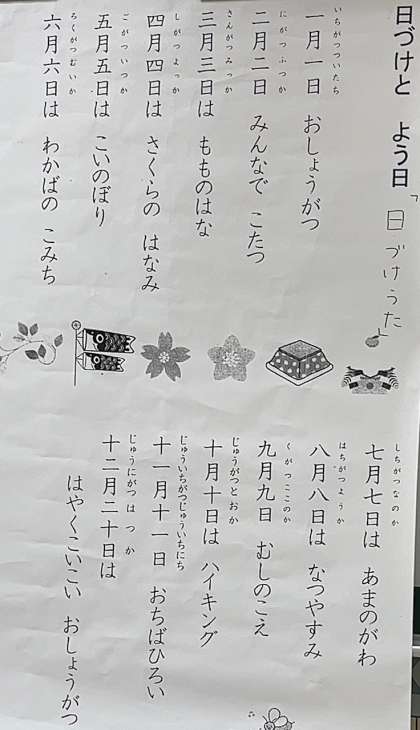 日づけと よう日
「日づけうた」
いちがつついたち
一月一日 おしょうがつ
にがつふつか
二月二日 みんなで こたつ
さんがつみっか
三月三日は もものはな
しがつよっか
四月四日は さくらの はなみ
ごがついつか
五月五日は こいのぼり
ろくがつむいか
六月六日は わかばの こみち
しちがつなのか
七月七日は あまのがわ
はちがつようか
八月八日は なつやすみ
くがつここのか
九月九日 むしのこえ
じゅうがつとおか
十月十日は ハイキング
じゅういちがつじゅういちにち
十一月十一日 おちばひろい
じゅうにがつはつか
十二月二十日は
はやくこいこい おしょうがつ